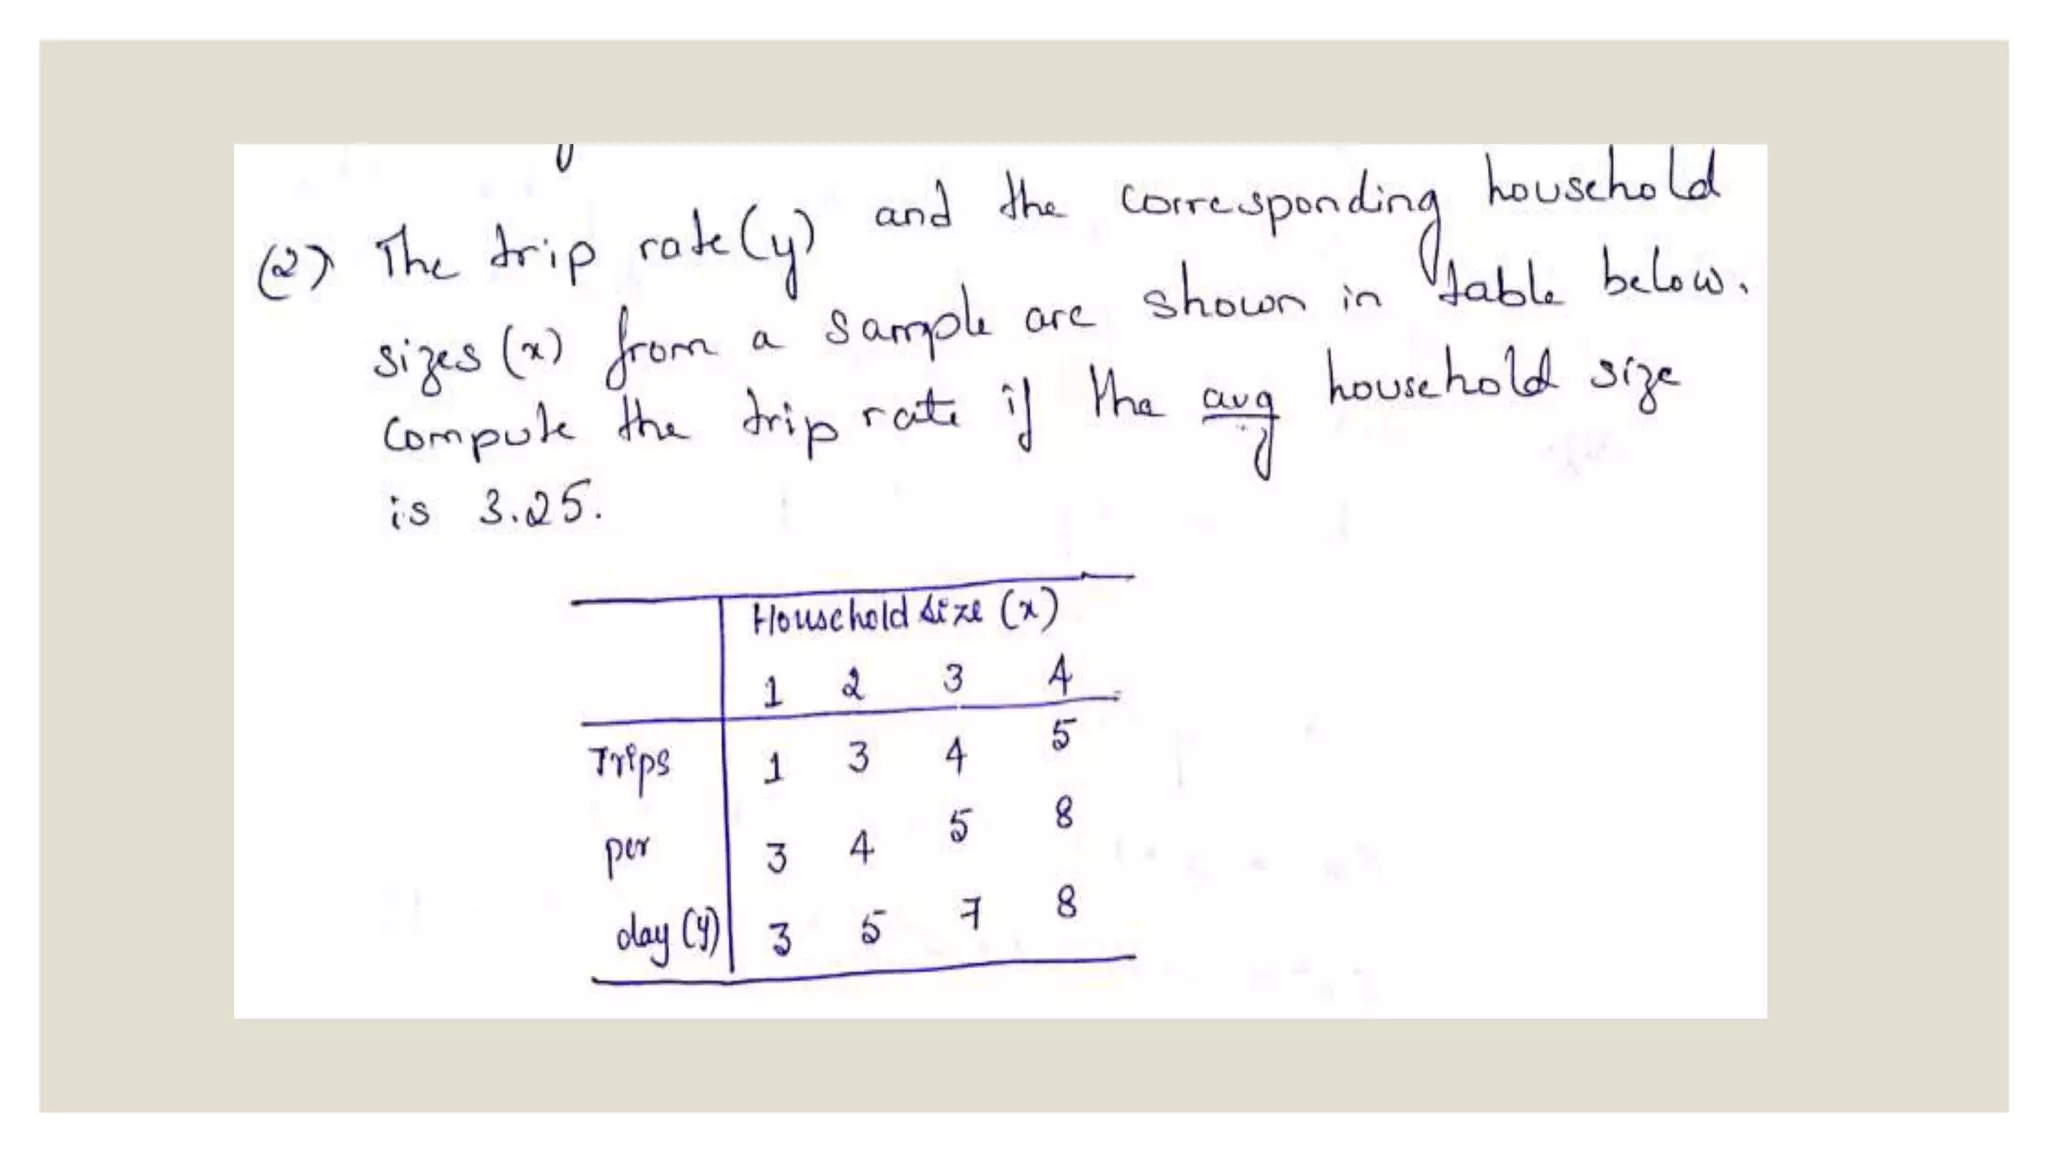 (2) The trip rate(y) and the corresponding household
sizes (x) from a sample are shown in table below.
Compute the trip rate if the avg household size
is 3.25.
Household size (x)
1 2 3 4
Trips 1 3 4 5
per 3 4 5 8
day (y) 3 5 7 8